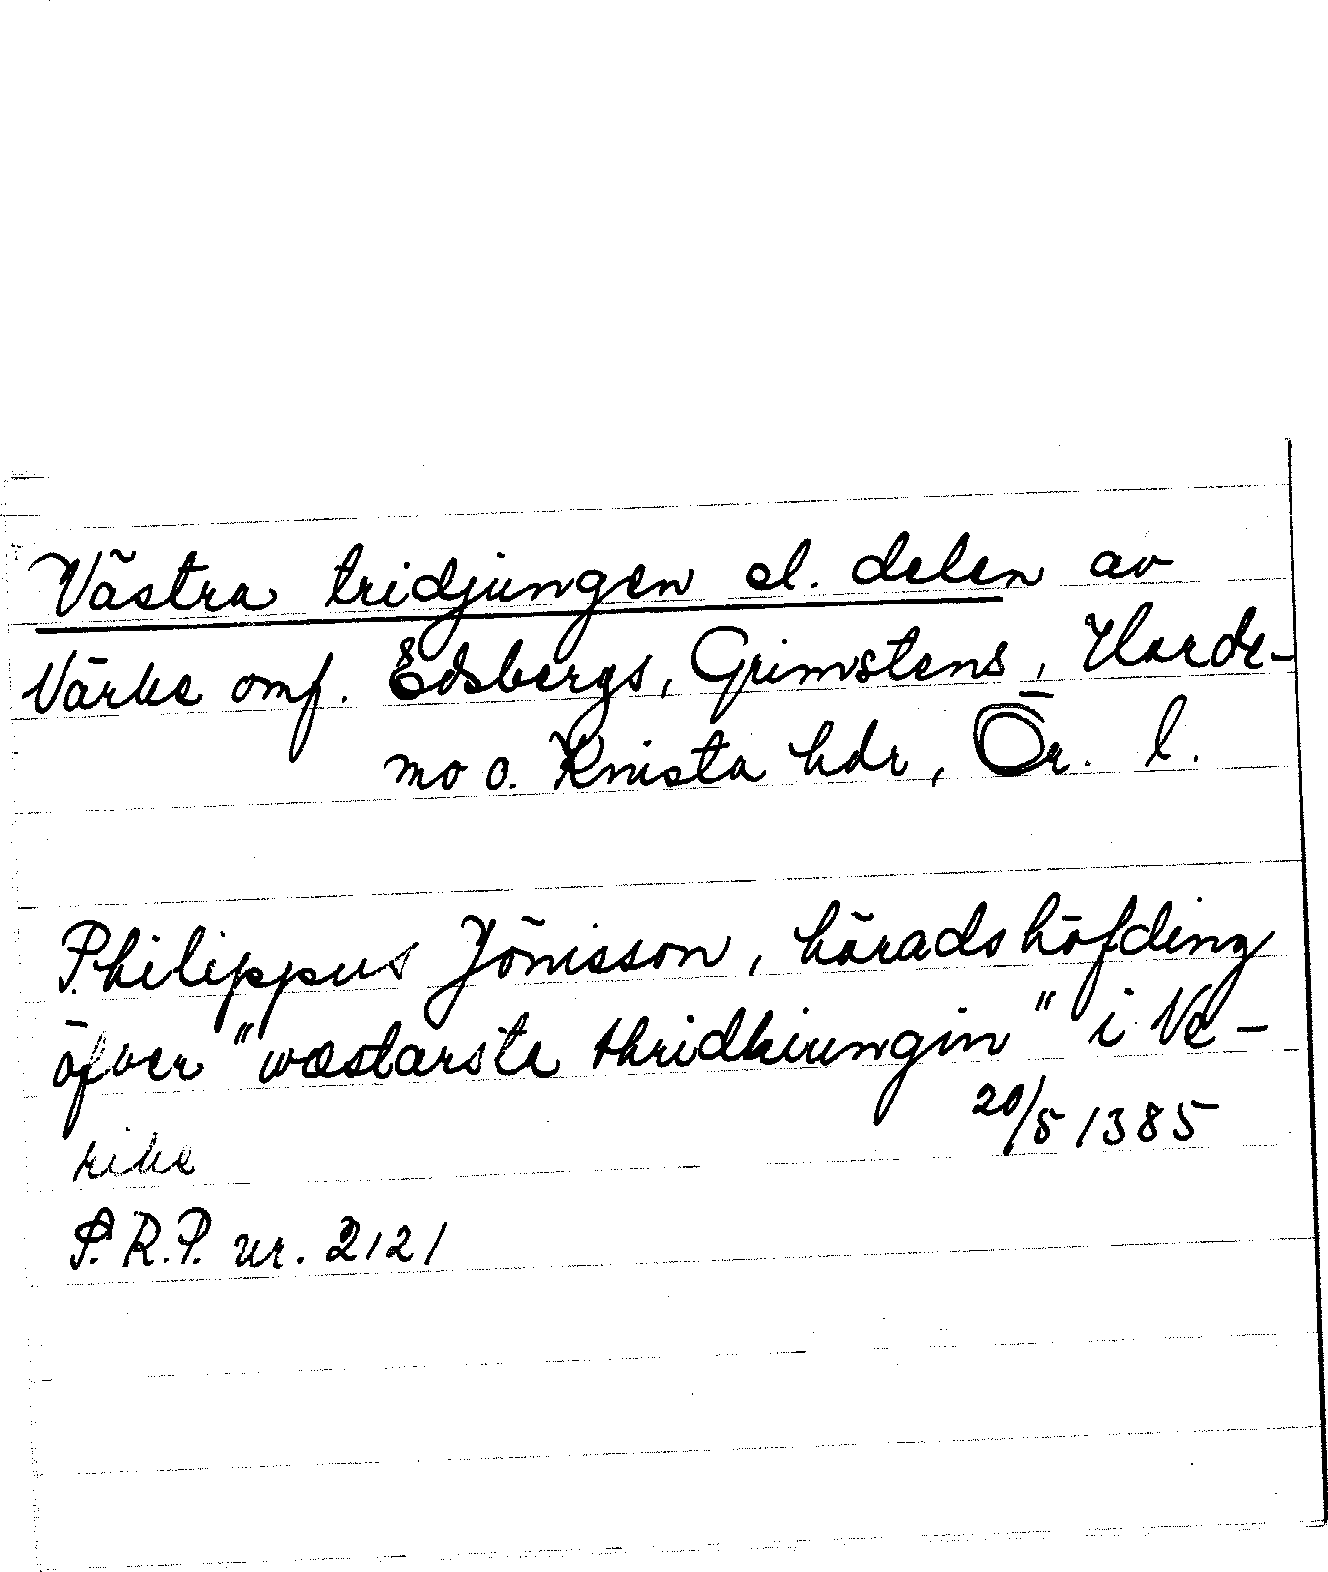 Västra tridjungen el. delen av
Närke omf. Edsbergs, Grimstens, Harde-
mo o. Knista hdr, Ör. l.
Philippus Jönisson, häradshöfding
öfver "wæstarste thridhiungin" i Ne-
rike 20/5 1385
S.R.P. nr. 2121